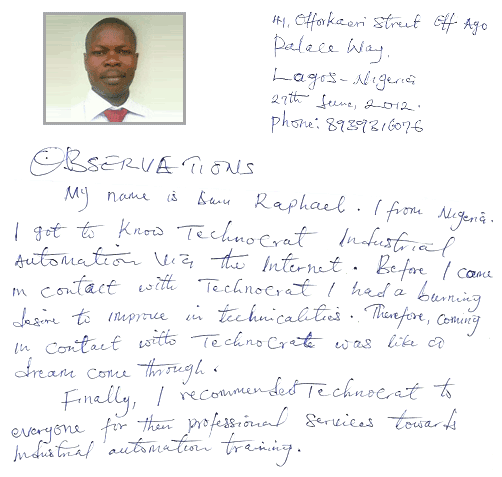 14, Efforkaeri Street Off Ago
Palace Way,
Lagos - Nigeria
27th June, 2012.
Phone: 8939316076
OBSERVATIONS
My name is Raphael. I from Nigeria.
I got to know Technocrat Industrial
Automation Via the Internet. Before I came
in contact with Technocrat I had a burning
desire to improve in technicalities. Therefore, coming
in contact with Technocrat was like a
dream come through.
Finally, I recommended Technocrat to
everyone for their professional services towards
Industrial automation training.